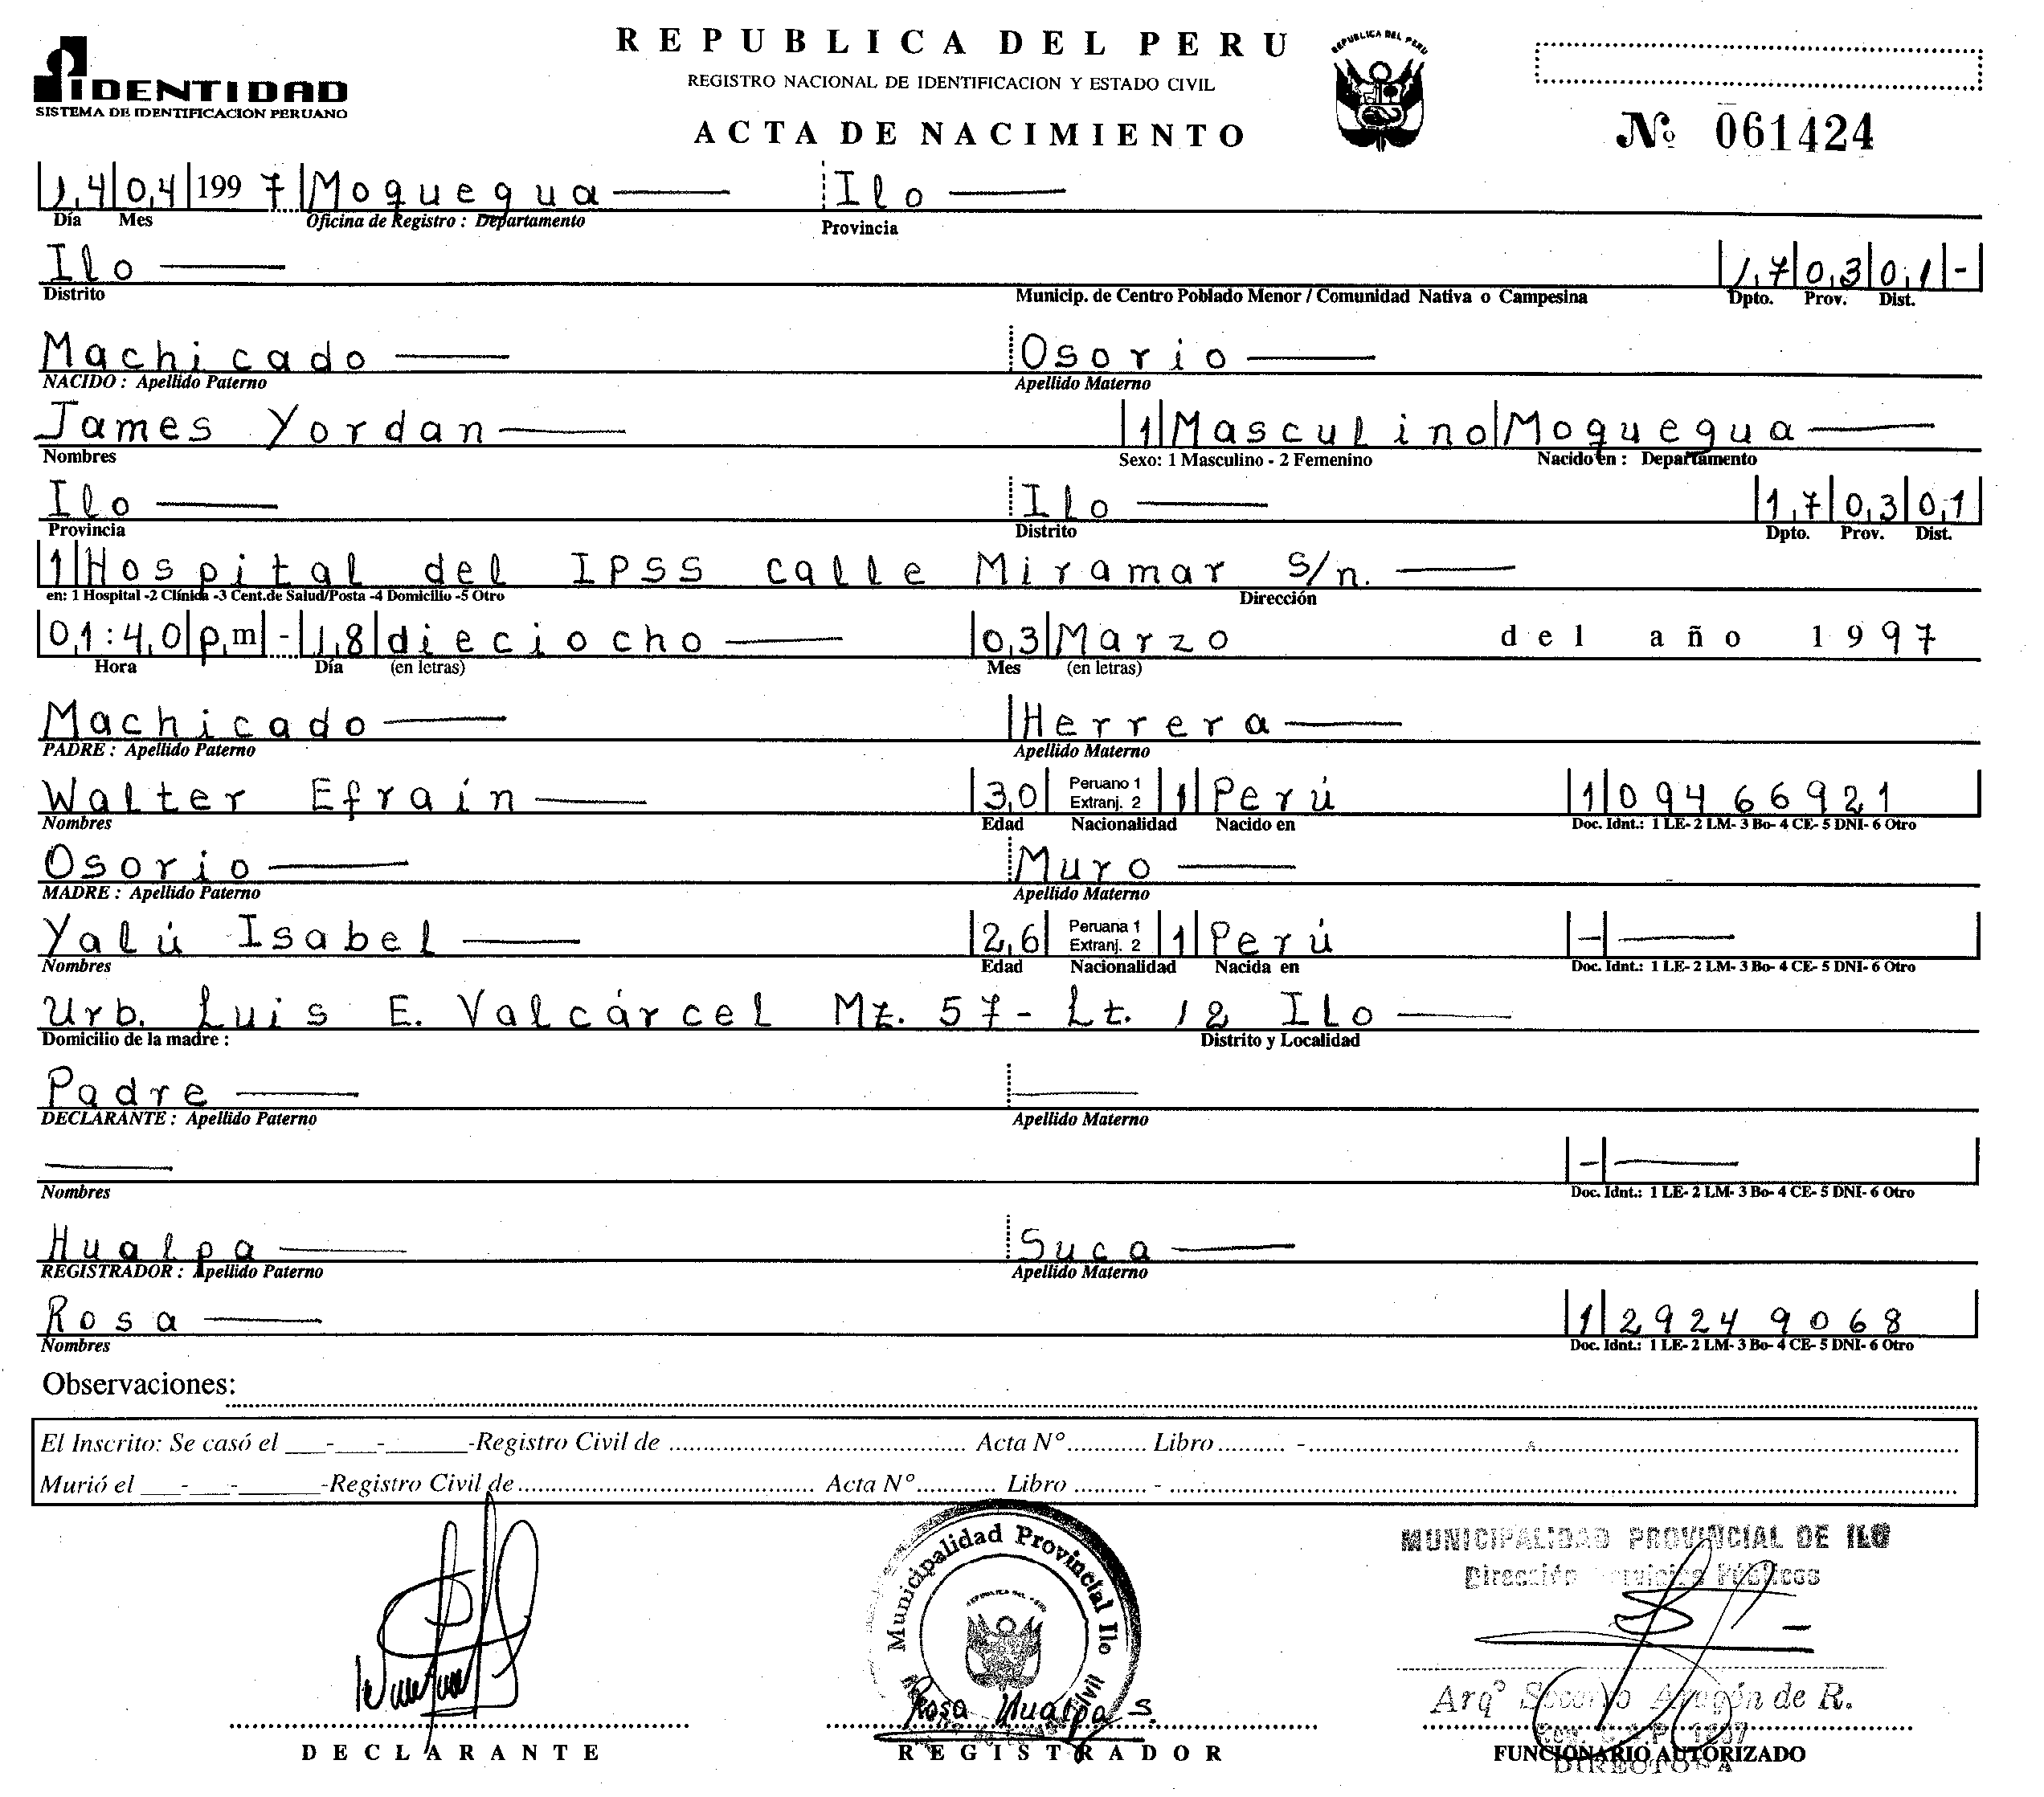 IDENTIDAD
SISTEMA DE IDENTIFICACION PERUANO
REPUBLICA DEL PERU
REGISTRO NACIONAL DE IDENTIFICACION Y ESTADO CIVIL
ACTA DE NACIMIENTO
REPUBLICA DEL PERU
Nº 061424
14 04 1997 Moquegua Ilo
Día Mes Oficina de Registro : Departamento Provincia
Ilo 17 03 01 -
Distrito Municip. de Centro Poblado Menor / Comunidad Nativa o Campesina Dpto. Prov. Dist.
Machicado Osorio
NACIDO : Apellido Paterno Apellido Materno
James Yordan 1 Masculino Moquegua
Nombres Sexo: 1 Masculino - 2 Femenino Nacido en : Departamento
Ilo Ilo 17 03 01
Provincia Distrito Dpto. Prov. Dist.
1 Hospital del IPSS calle Miramar S/n.
en: 1 Hospital -2 Clínida -3 Cent.de Salud/Posta -4 Domicilio -5 Otro Dirección
01:40 pm - 18 dieciocho 03 Marzo del año 1997
Hora Día (en letras) Mes (en letras)
Machicado Herrera
PADRE : Apellido Paterno Apellido Materno
Walter Efraín 30 Peruano 1 Extranj. 2 1 Perú 1 09466921
Nombres Edad Nacionalidad Nacido en Doc. Idnt.: 1 LE- 2 LM- 3 Bo- 4 CE- 5 DNI- 6 Otro
Osorio Muro
MADRE : Apellido Paterno Apellido Materno
Yalú Isabel 26 Peruana 1 Extranj. 2 1 Perú -
Nombres Edad Nacionalidad Nacida en Doc. Idnt.: 1 LE- 2 LM- 3 Bo- 4 CE- 5 DNI- 6 Otro
Urb. Luis E. Valcárcel Mz. 57- Lt. 12 Ilo
Domicilio de la madre : Distrito y Localidad
Padre
DECLARANTE : Apellido Paterno Apellido Materno
-
Nombres Doc. Idnt.: 1 LE- 2 LM- 3 Bo- 4 CE- 5 DNI- 6 Otro
Hualpa Suca
REGISTRADOR : Apellido Paterno Apellido Materno
Rosa 1 29249068
Nombres Doc. Idnt.: 1 LE- 2 LM- 3 Bo- 4 CE- 5 DNI- 6 Otro
Observaciones:
El Inscrito: Se casó el ___-___-______-Registro Civil de ........ Acta Nº........ Libro........ -........
Murió el ___-___-______-Registro Civil de ........ Acta Nº........ Libro ........ - ........
Municipalidad Provincial Ilo
REPUBLICA DEL PERU
Rosa Hualpa S.
MUNICIPALIDAD PROVINCIAL DE ILO
Dirección Servicios Públicos
Arqº Socorro Aragón de R.
DIRECTORA
DECLARANTE REGISTRADOR FUNCIONARIO AUTORIZADO